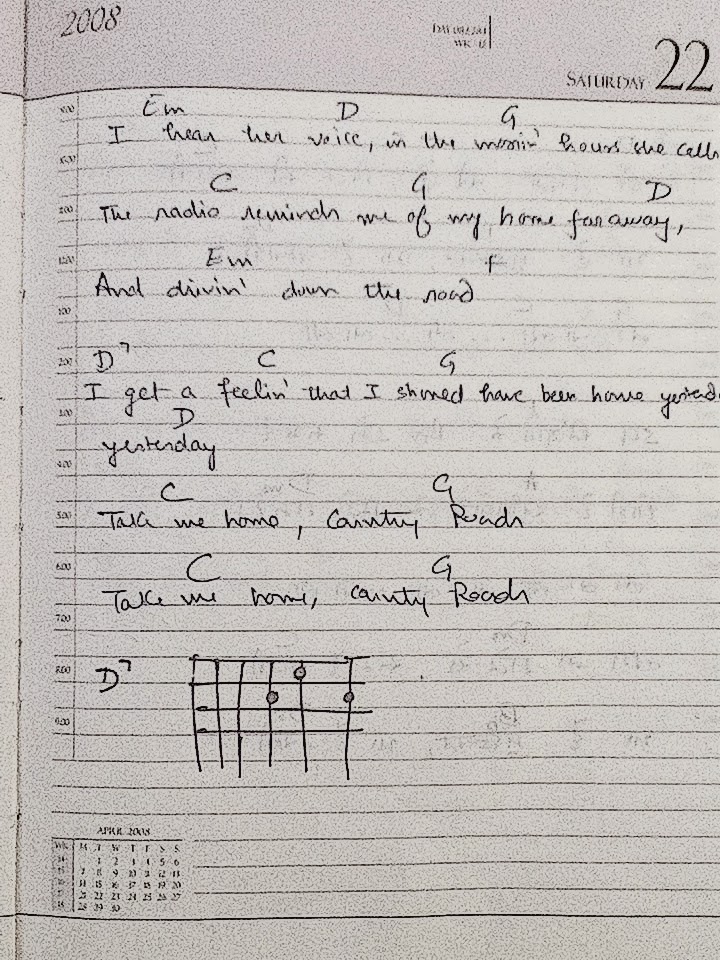 2008
WK 12
SATURDAY 22
Em D G
I hear her voice, in the mornin' hours she calls
C G D
The radio reminds me of my home far away,
Em F
And drivin' down the road
D7 C G
I get a feelin' that I shoued have been home yesterd
D
yesterday
C G
Take me home, Country Roads
C G
Take me home, County Roads
D7
APRIL 2008
WK M T W T F S S
14 1 2 3 4 5 6
15 7 8 9 10 11 12 13
16 14 15 16 17 18 19 20
17 21 22 23 24 25 26 27
18 28 29 30